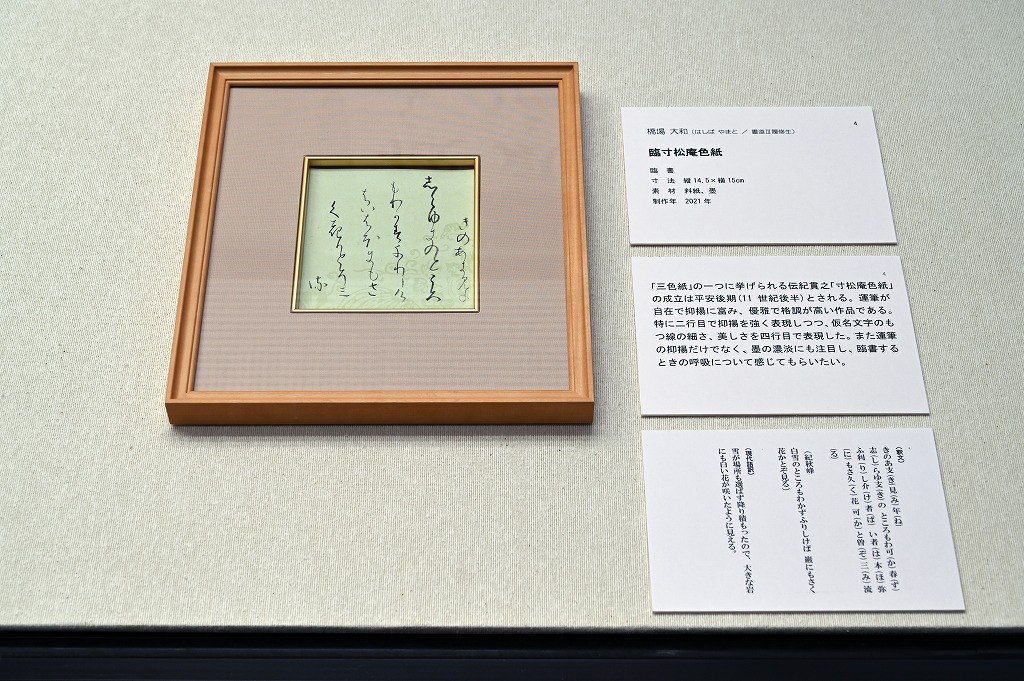 きのあきみね
4
橋場 大和（はしば やまと / 書道Ⅱ履修生）
臨寸松庵色紙
臨 書
寸 法 縦14.5×横15㎝
素 材 料紙、墨
制作年 2021年
4
「三色紙」の一つに挙げられる伝紀貫之「寸松庵色紙」
の成立は平安後期(11 世紀後半)とされる。運筆が
自在で抑揚に富み、優雅で格調が高い作品である。
特に二行目で抑揚を強く表現しつつ、仮名文字のも
つ線の細さ、美しさを四行目で表現した。また運筆
の抑揚だけでなく、墨の濃淡にも注目し、臨書する
ときの呼吸について感じてもらいたい。
（釈文）
きのあ支(き)見(み)年(ね)
志(し)らゆ支(き)の ところもわ可(か)春(ず)
ふ利(り)し介(け)者(ば) い者(は)本(ほ)弥
(に)もさ久(く)花 可(か)と曽(ぞ)三(み)流
(る)
（紀秋峰
白雪のところもわかずふりしけば 巌にもさく
花かとぞ見る）
（現代語訳）
雪が場所も選ばず降り積もったので、大きな岩
にも白い花が咲いたように見える。